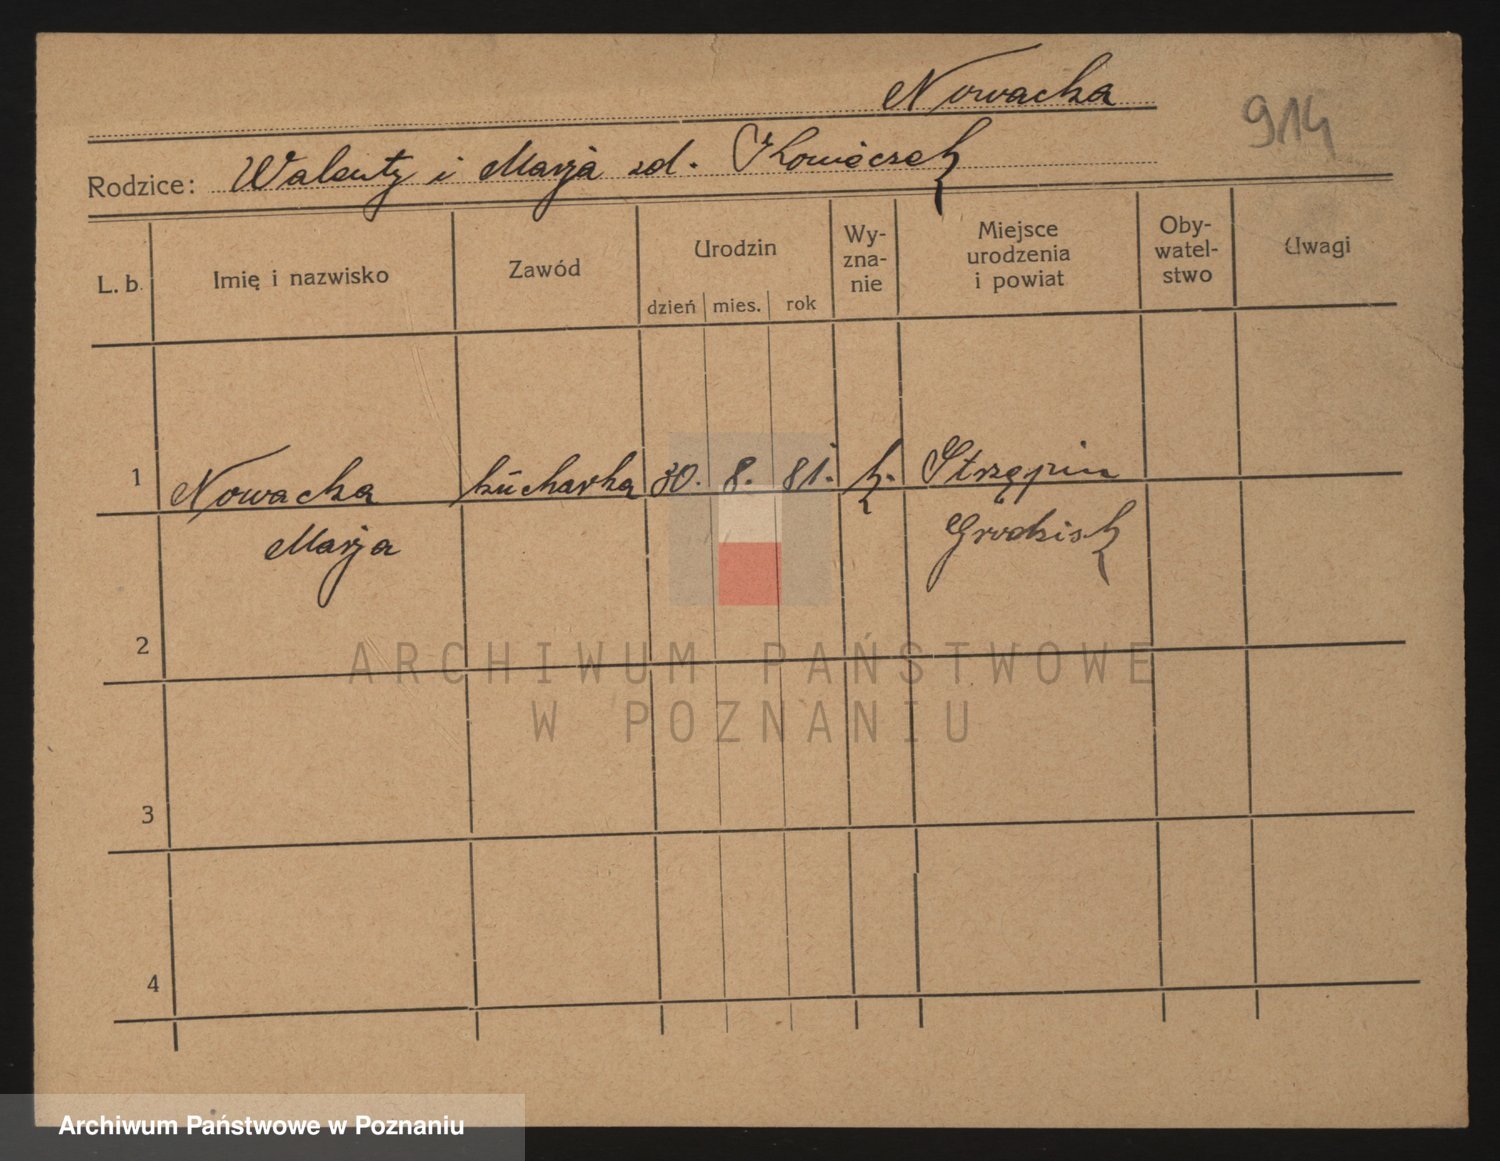 Nowacka
914
Rodzice: Walenty i Marja zd. Konieczek
L. b. Imię i nazwisko Zawód Urodzin dzień mies. rok Wy-zna-nie Miejsce urodzenia i powiat Oby-watel-stwo Uwagi
1 Nowacka kucharka 30. 8. 81. k. Strzępin
Marja Grodzisk
2
ARCHIWUM PAŃSTWOWE
W POZNANIU
3
4
Archiwum Państwowe w Poznaniu